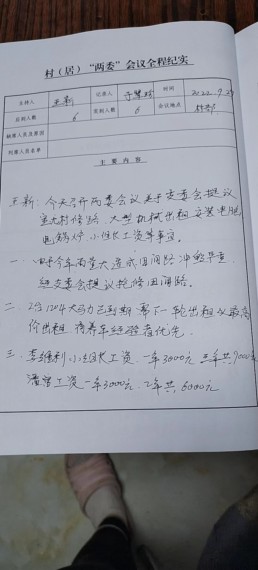 村（居）“两委”会议全程纪实
主持人 王新 记录人 时间 2022.9.2
应到人数 6 实到人数 6 会议地点 村部
缺席人员及原因
列席人员名单
主 要 内 容
王新：今天召开两委会议 是于支委会提议
村修路 大型机械出租 安装电脑
电锅炉 小组长工资等事宜。
一、 今年雨量大造成田间路冲
经支委会提议抢修田间路。
二、2台1204大马力已到期 下一轮出租 以最高
价出租 有养车经验者优先
三、 小组长工资 一年3000元 三年共9000元
工资一年3000元 2年共6000元